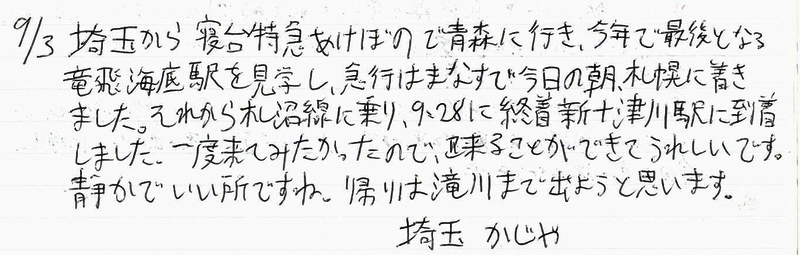 9/3 埼玉から寝台特急あけぼので青森に行き、今年で最後となる
竜飛海底駅を見学し、急行はまなすで今日の朝、札幌に着き
ました。それから札沼線に乗り、9:28に終着新十津川駅に到着
しました。一度来てみたかったので、来ることができてうれしいです。
静かでいい所ですね。帰りは滝川まで出ようと思います。
埼玉 かじや